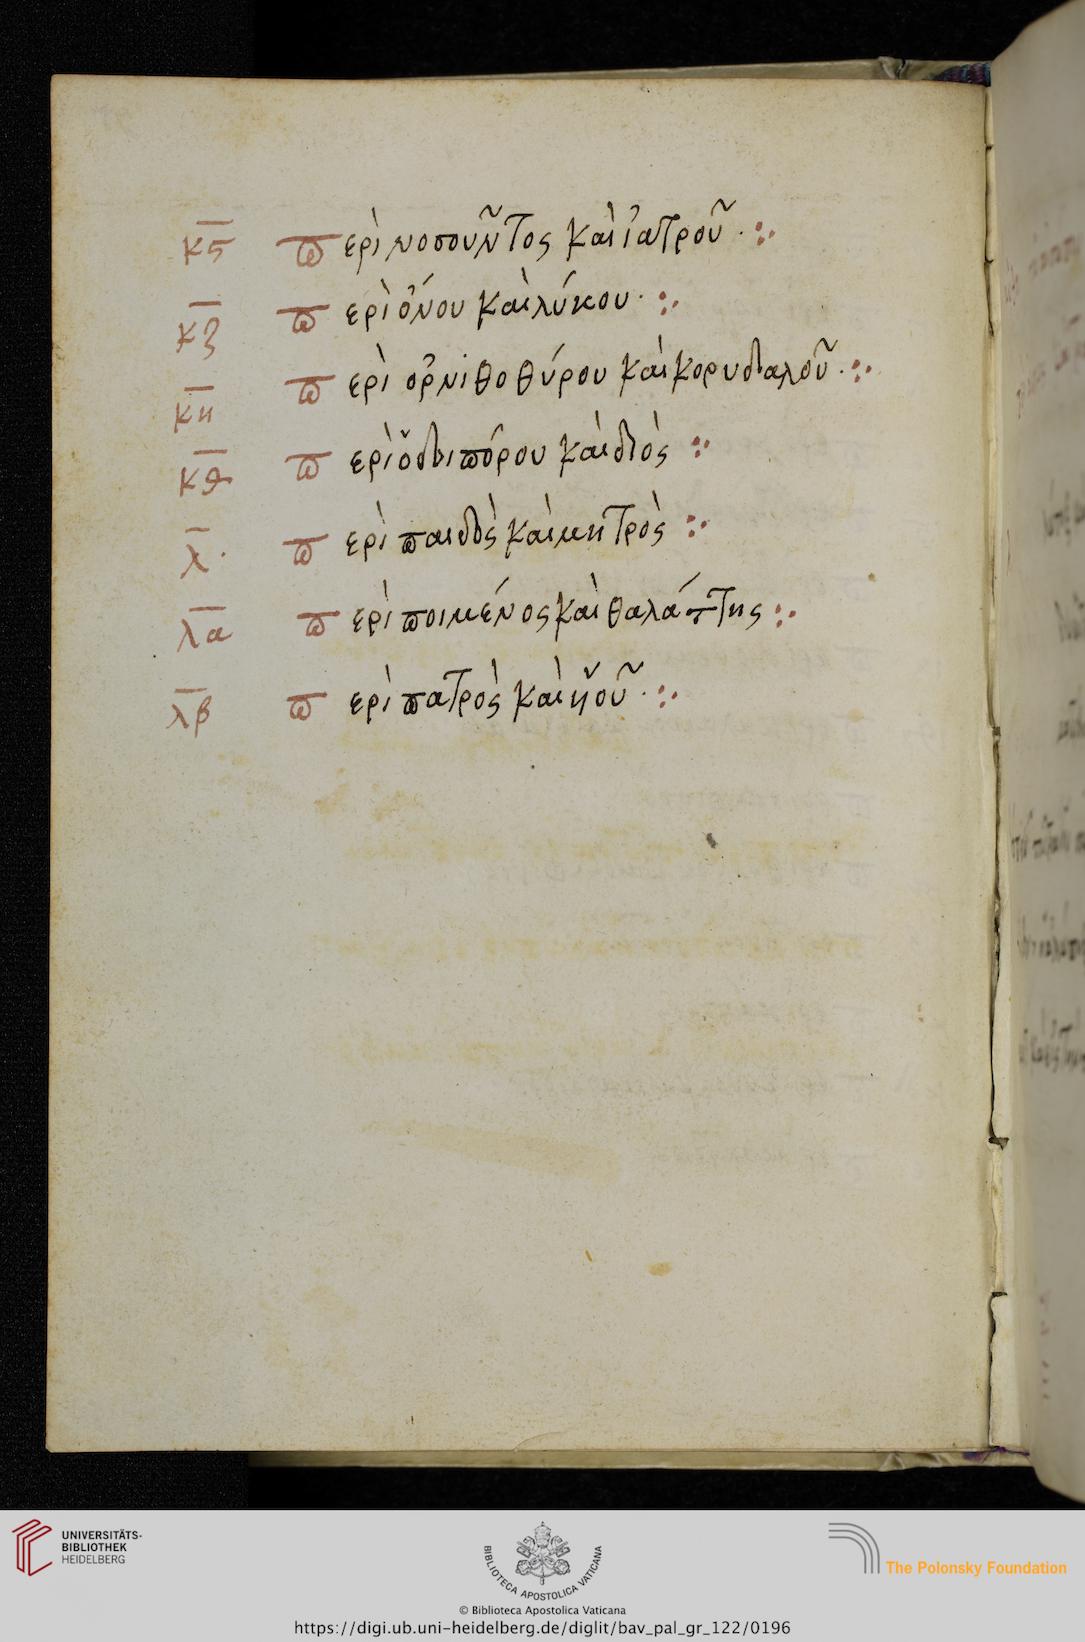 κϛ Περὶ νοσοῦντος καὶ ἰατροῦ
κζ Περὶ ὄνου καὶ λύκου
κη Περὶ ὀρνιθοθύρου καὶ κορυδαλοῦ
κθ Περὶ ὁδοιπόρου καὶ διός
λ Περὶ παιδὸς καὶ μητρὸς
λα Περὶ ποιμένος καὶ θαλάττης
λβ Περὶ πατρὸς καὶ ὑοῦ
UNIVERSITÄTS-
BIBLIOTHEK
HEIDELBERG
BIBLIOTECA APOSTOLICA VATICANA
The Polonsky Foundation
© Biblioteca Apostolica Vaticana
https://digi.ub.uni-heidelberg.de/diglit/bav_pal_gr_122/0196